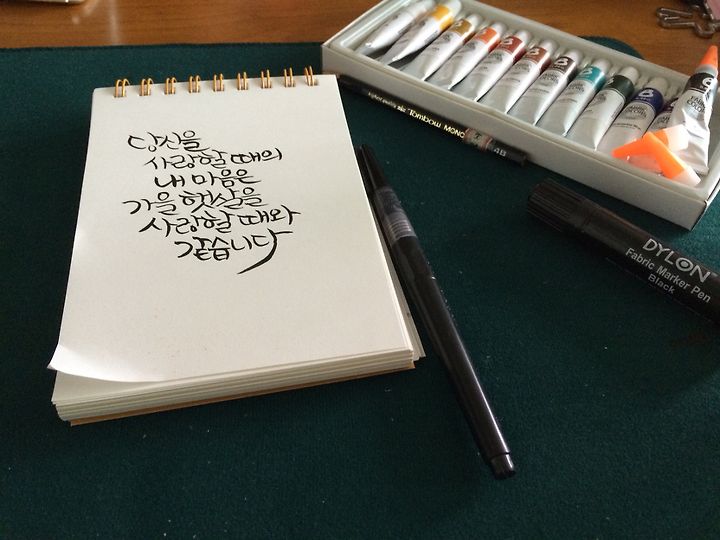 당신을
사랑할 때의
내 마음은
가을 햇살을
사랑할 때와
같습니다
Tombow MONO
4B
DYLON
Fabric Marker Pen
Black